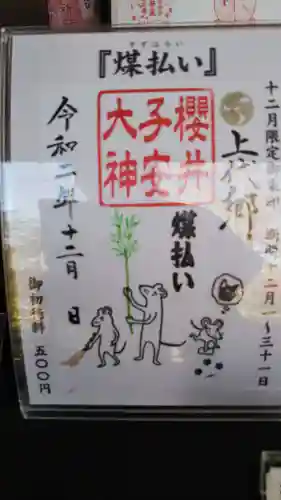 『煤払い』
すすはらい
十二月限定御朱印
十二月一〜三十一日
上代都
櫻井
子安
大神
煤払い
令和二年十二月 日
御初穂料 五〇〇円